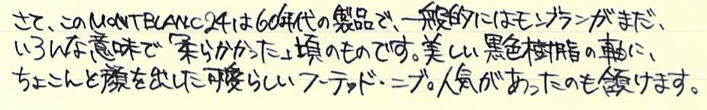 さて、このMONTBLANC24は60年代の製品で、一般的にはモンブランがまだ、
いろんな意味で「柔らかかった」頃のものです。美しい黒色樹脂の軸に、
ちょこんと顔を出した可愛らしいフーテッド・ニブ。人気があったのも頷けます。